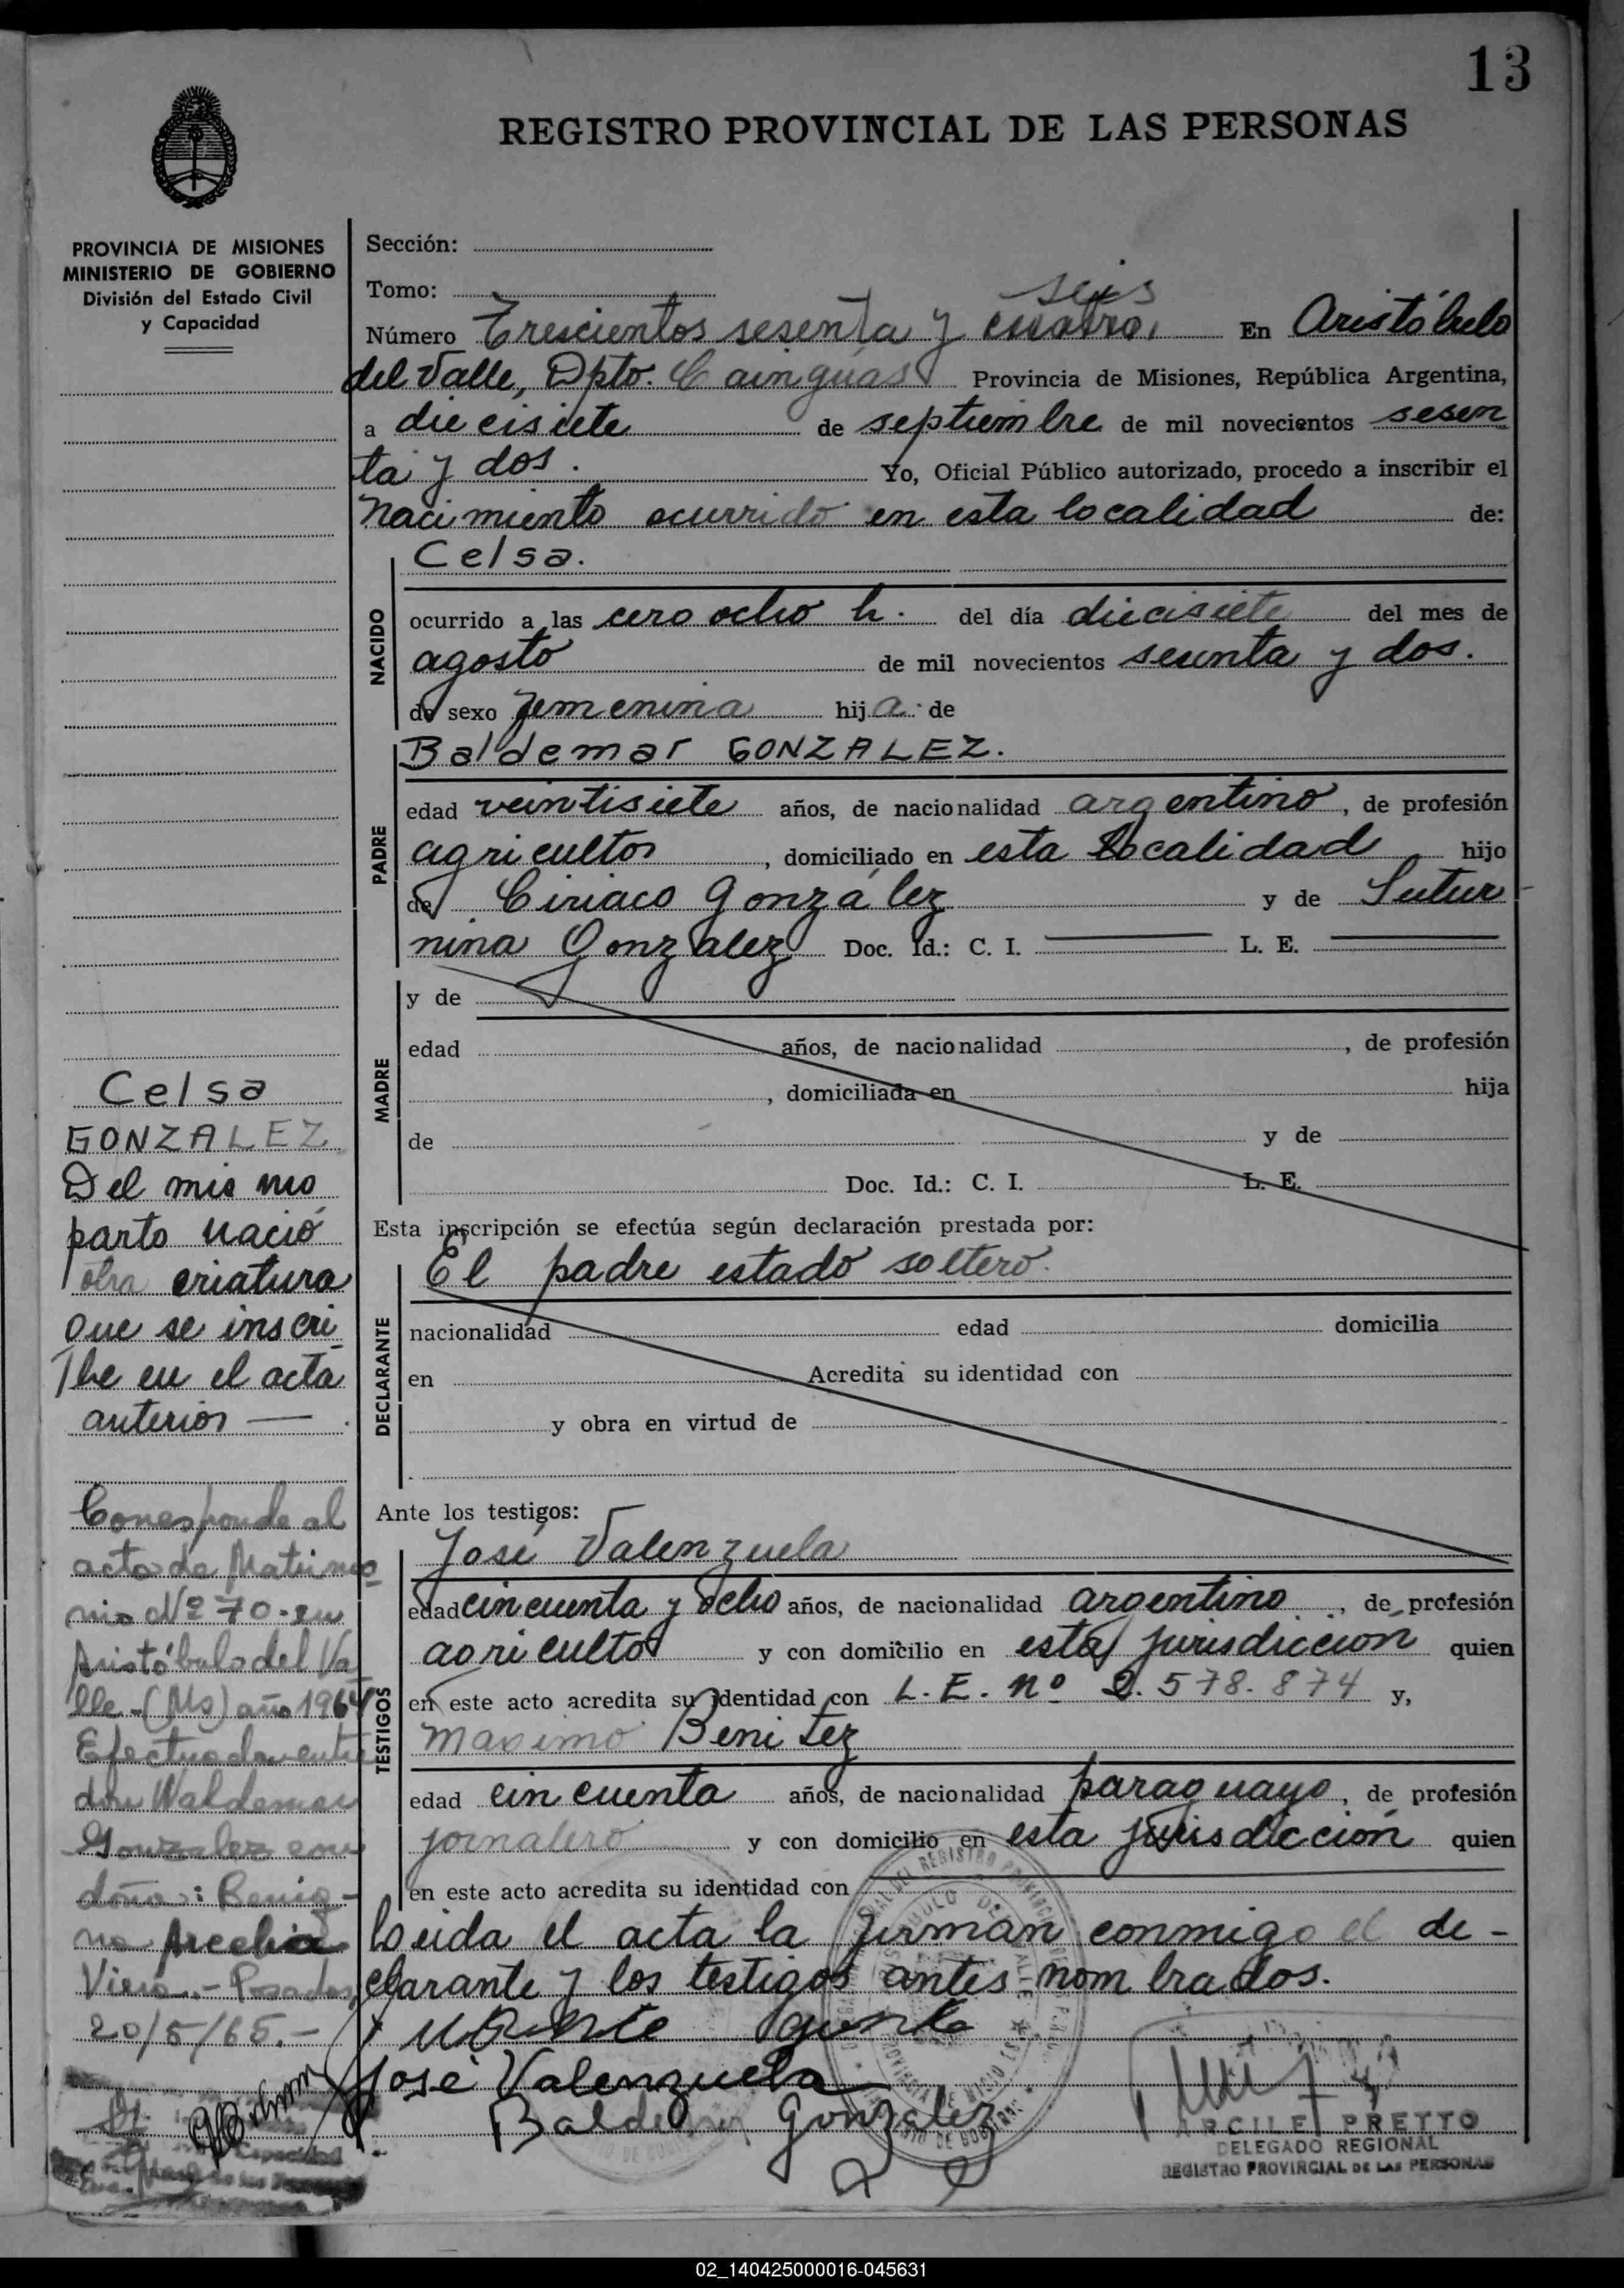 13
REGISTRO PROVINCIAL DE LAS PERSONAS
PROVINCIA DE MISIONES
MINISTERIO DE GOBIERNO
División del Estado Civil
y Capacidad
Sección:
Tomo:
seis
Número Trescientos sesenta y cuatro, En Aristóbulo
del Valle, Dpto. Cainguás Provincia de Misiones, República Argentina,
a diecisiete de septiembre de mil novecientos sesen
ta y dos. Yo, Oficial Público autorizado, procedo a inscribir el
nacimiento ocurrido en esta localidad de:
NACIDO
Celsa.
ocurrido a las cero ocho h. del día diecisiete del mes de
agosto de mil novecientos sesenta y dos.
de sexo femenina hija de
PADRE
Baldemar GONZALEZ.
edad veintisiete años, de nacionalidad argentino, de profesión
agricultor, domiciliado en esta localidad hijo
de Ciriaco González y de Satur
nina Gonzalez Doc. Id.: C. I. L. E.
MADRE
y de
edad años, de nacionalidad , de profesión
, domiciliada en hija
de y de
Doc. Id.: C. I. L. E.
Esta inscripción se efectúa según declaración prestada por:
DECLARANTE
El padre estado soltero.
nacionalidad edad domicilia
en Acredita su identidad con
y obra en virtud de
Ante los testigos:
TESTIGOS
José Valenzuela
edad cincuenta y ocho años, de nacionalidad argentino, de profesión
agricultor y con domicilio en esta jurisdiccion quien
en este acto acredita su identidad con L. E. nº 2.578.874 y,
Maximo Benitez
edad cincuenta años, de nacionalidad paraguayo, de profesión
jornalero y con domicilio en esta jurisdicción quien
en este acto acredita su identidad con
Leida el acta la firman conmigo el de-
clarante y los testigos antes nombrados.
José Valenzuela
Baldemar Gonzalez
ARCILE PRETTO
DELEGADO REGIONAL
REGISTRO PROVINCIAL DE LAS PERSONAS
Celsa
GONZALEZ
Del mismo
parto nació
otra criatura
que se inscri
be en el acta
anterior —
Corresponde al
acta de Matrimo
nio Nº 70 - en
Aristóbulo del Va
lle - (Ms) año 1964
Efectuada entre
don Waldemar
Gonzalez con
doña: Benig-
na Arcelia
Viera.- Posadas,
20/5/65.-
02_140425000016-045631